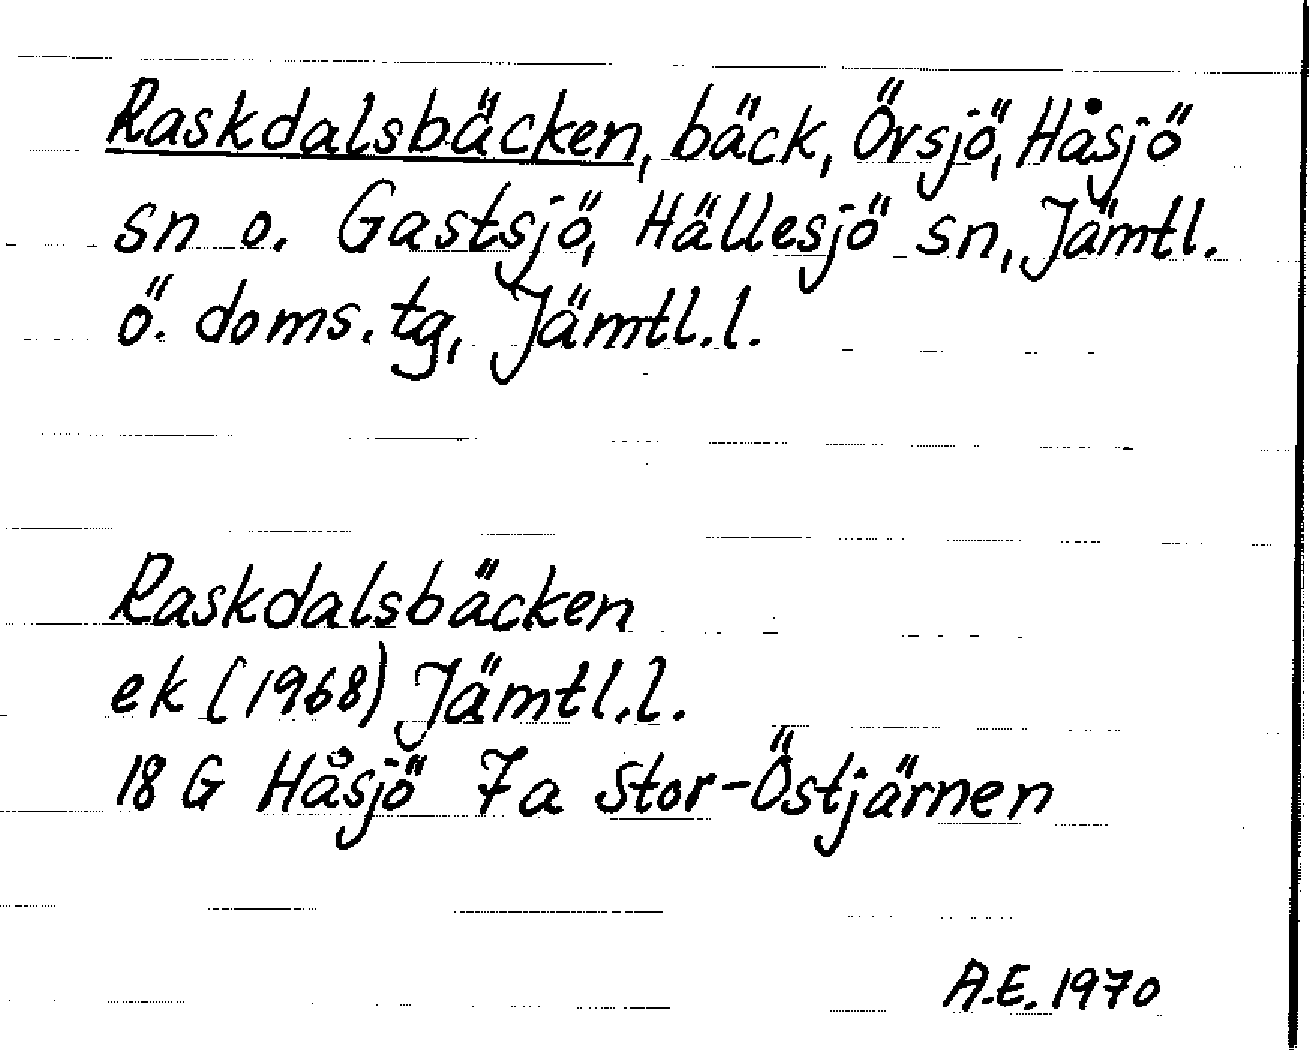 Raskdalsbäcken, bäck, Övsjö, Håsjö
sn o. Gastsjö, Hällesjö sn, Jämtl.
ö. doms.tg, Jämtl.l.
Raskdalsbäcken
ek (1968) Jämtl.l.
18 G Håsjö 7a Stor-Östjärnen
A.E. 1970